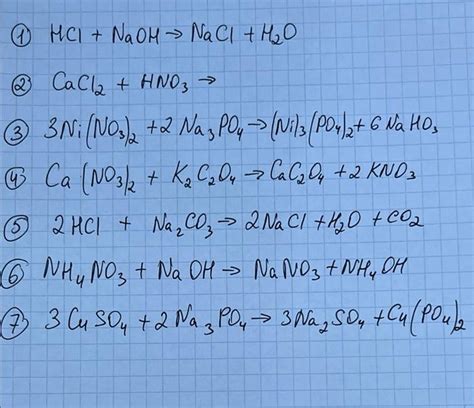 ① HCl + NaOH → NaCl + H₂O
② CaCl₂ + HNO₃ →
③ 3Ni(NO₃)₂ + 2Na₃PO₄ → (Ni)₃(PO₄)₂ + 6NaHO₃
④ Ca(NO₃)₂ + K₂C₂O₄ → CaC₂O₄ + 2KNO₃
⑤ 2HCl + Na₂CO₃ → 2NaCl + H₂O + CO₂
⑥ NH₄NO₃ + NaOH → NaNO₃ + NH₄OH
⑦ 3CuSO₄ + 2Na₃PO₄ → 3Na₂SO₄ + Cu(PO₄)₂